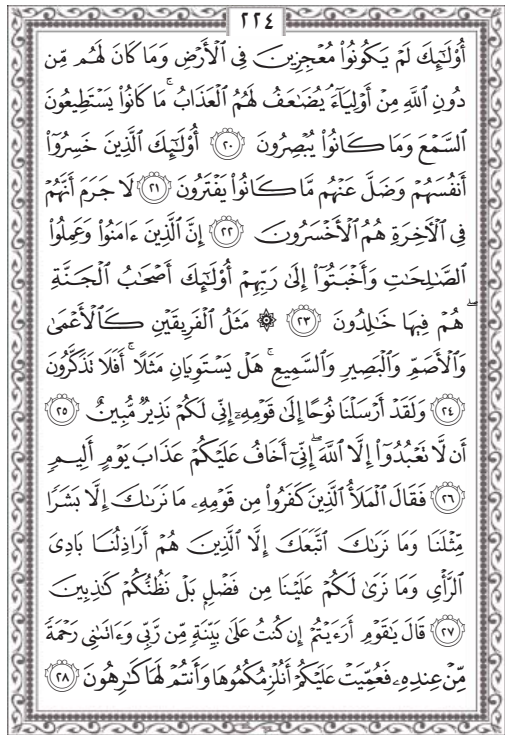 ٢٢٤
أُوْلَٰٓئِكَ لَمْ يَكُونُواْ مُعْجِزِينَ فِي ٱلْأَرْضِ وَمَا كَانَ لَهُم مِّن
دُونِ ٱللَّهِ مِنْ أَوْلِيَآءَۘ يُضَٰعَفُ لَهُمُ ٱلْعَذَابُۚ مَا كَانُواْ يَسْتَطِيعُونَ
ٱلسَّمْعَ وَمَا كَانُواْ يُبْصِرُونَ ٢٠ أُوْلَٰٓئِكَ ٱلَّذِينَ خَسِرُوٓاْ
أَنفُسَهُمْ وَضَلَّ عَنْهُم مَّا كَانُواْ يَفْتَرُونَ ٢١ لَا جَرَمَ أَنَّهُمْ
فِي ٱلْأٓخِرَةِ هُمُ ٱلْأَخْسَرُونَ ٢٢ إِنَّ ٱلَّذِينَ ءَامَنُواْ وَعَمِلُواْ
ٱلصَّٰلِحَٰتِ وَأَخْبَتُوٓاْ إِلَىٰ رَبِّهِمْ أُوْلَٰٓئِكَ أَصْحَٰبُ ٱلْجَنَّةِۖ
هُمْ فِيهَا خَٰلِدُونَ ٢٣ ۞ مَثَلُ ٱلْفَرِيقَيْنِ كَٱلْأَعْمَىٰ
وَٱلْأَصَمِّ وَٱلْبَصِيرِ وَٱلسَّمِيعِۚ هَلْ يَسْتَوِيَانِ مَثَلًاۚ أَفَلَا تَذَكَّرُونَ
٢٤ وَلَقَدْ أَرْسَلْنَا نُوحًا إِلَىٰ قَوْمِهِۦٓ إِنِّي لَكُمْ نَذِيرٌ مُّبِينٌ ٢٥
أَن لَّا تَعْبُدُوٓاْ إِلَّا ٱللَّهَۖ إِنِّيٓ أَخَافُ عَلَيْكُمْ عَذَابَ يَوْمٍ أَلِيمٍ
٢٦ فَقَالَ ٱلْمَلَأُ ٱلَّذِينَ كَفَرُواْ مِن قَوْمِهِۦ مَا نَرَىٰكَ إِلَّا بَشَرًا
مِّثْلَنَا وَمَا نَرَىٰكَ ٱتَّبَعَكَ إِلَّا ٱلَّذِينَ هُمْ أَرَاذِلُنَا بَادِيَ
ٱلرَّأْيِ وَمَا نَرَىٰ لَكُمْ عَلَيْنَا مِن فَضْلٍۭ بَلْ نَظُنُّكُمْ كَٰذِبِينَ
٢٧ قَالَ يَٰقَوْمِ أَرَءَيْتُمْ إِن كُنتُ عَلَىٰ بَيِّنَةٍ مِّن رَّبِّي وَءَاتَىٰنِي رَحْمَةً
مِّنْ عِندِهِۦ فَعُمِّيَتْ عَلَيْكُمْ أَنُلْزِمُكُمُوهَا وَأَنتُمْ لَهَا كَٰرِهُونَ ٢٨